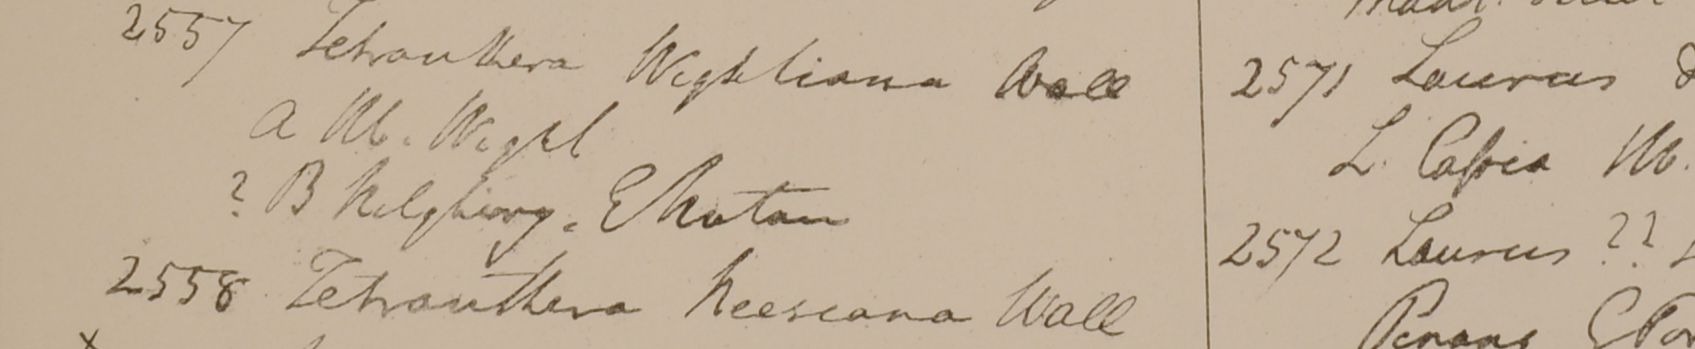 2557 Tetranthera Wightiana Wall
a Hb. Wight
? B Nilghiry. E Notan
2558 Tetranthera Neesiana Wall
2571 Laurus
L. Cassia Hb.
2572 Laurus ??
Penang